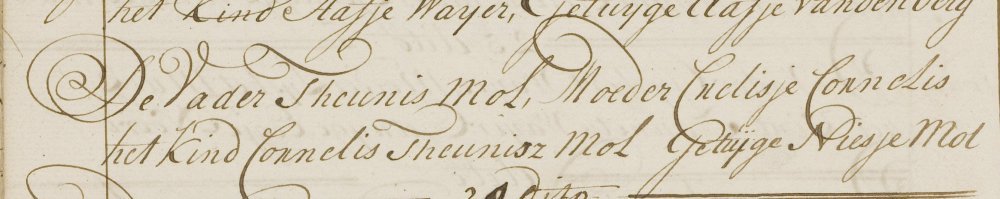 het Kind Aafje Wayer, Getuyge Aafje Vandenberg
De Vader Theunis Mol, Moeder Cnelisje Cornelis
het Kind Cornelis Theunisz Mol Getuijge Niesje Mol